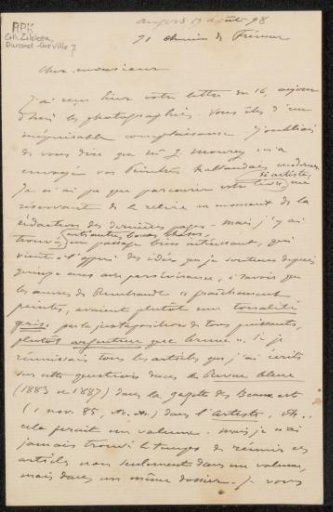 RPK
Coll. Zilcken
Durand-Gréville 7
angers 17 août 98
71 chemin de Frémur
Cher monsieur
J'ai reçu hier votre lettre du 16, aujour
d'hui les photographies. Vous êtes d'une
inépuisable complaisance. J'oubliais
de vous dire que M. J. Mourey m'a
envoyé vos Peintres hollandais modernes
Je n'ai pu que parcourir votre livre, me
réservant de le relire au moment de la
rédaction des dernières pages. mais j'y ai
trouvé, entre autres bonnes choses,
un passage bien intéressant, qui
vient à l'appui des idées que je soutiens depuis
quinze ans avec persévérance, à savoir que
les œuvres de Rembrandt, fraîchement
peintes, avaient plutôt une tonalité
grise par la juxtaposition de tons puissants,
plutôt argentine que brune. Si je
réunissais tous les articles que j'ai écrits
sur cette question dans la Revue bleue
(1883 et 1887) dans la gazette des Beaux-arts
(1 nov 85, etc. etc.) dans l'artiste, etc.,
cela ferait un volume. mais je n'ai
jamais trouvé le temps de réunir ces
articles non seulement dans un volume,
mais dans un même dossier. Je vous